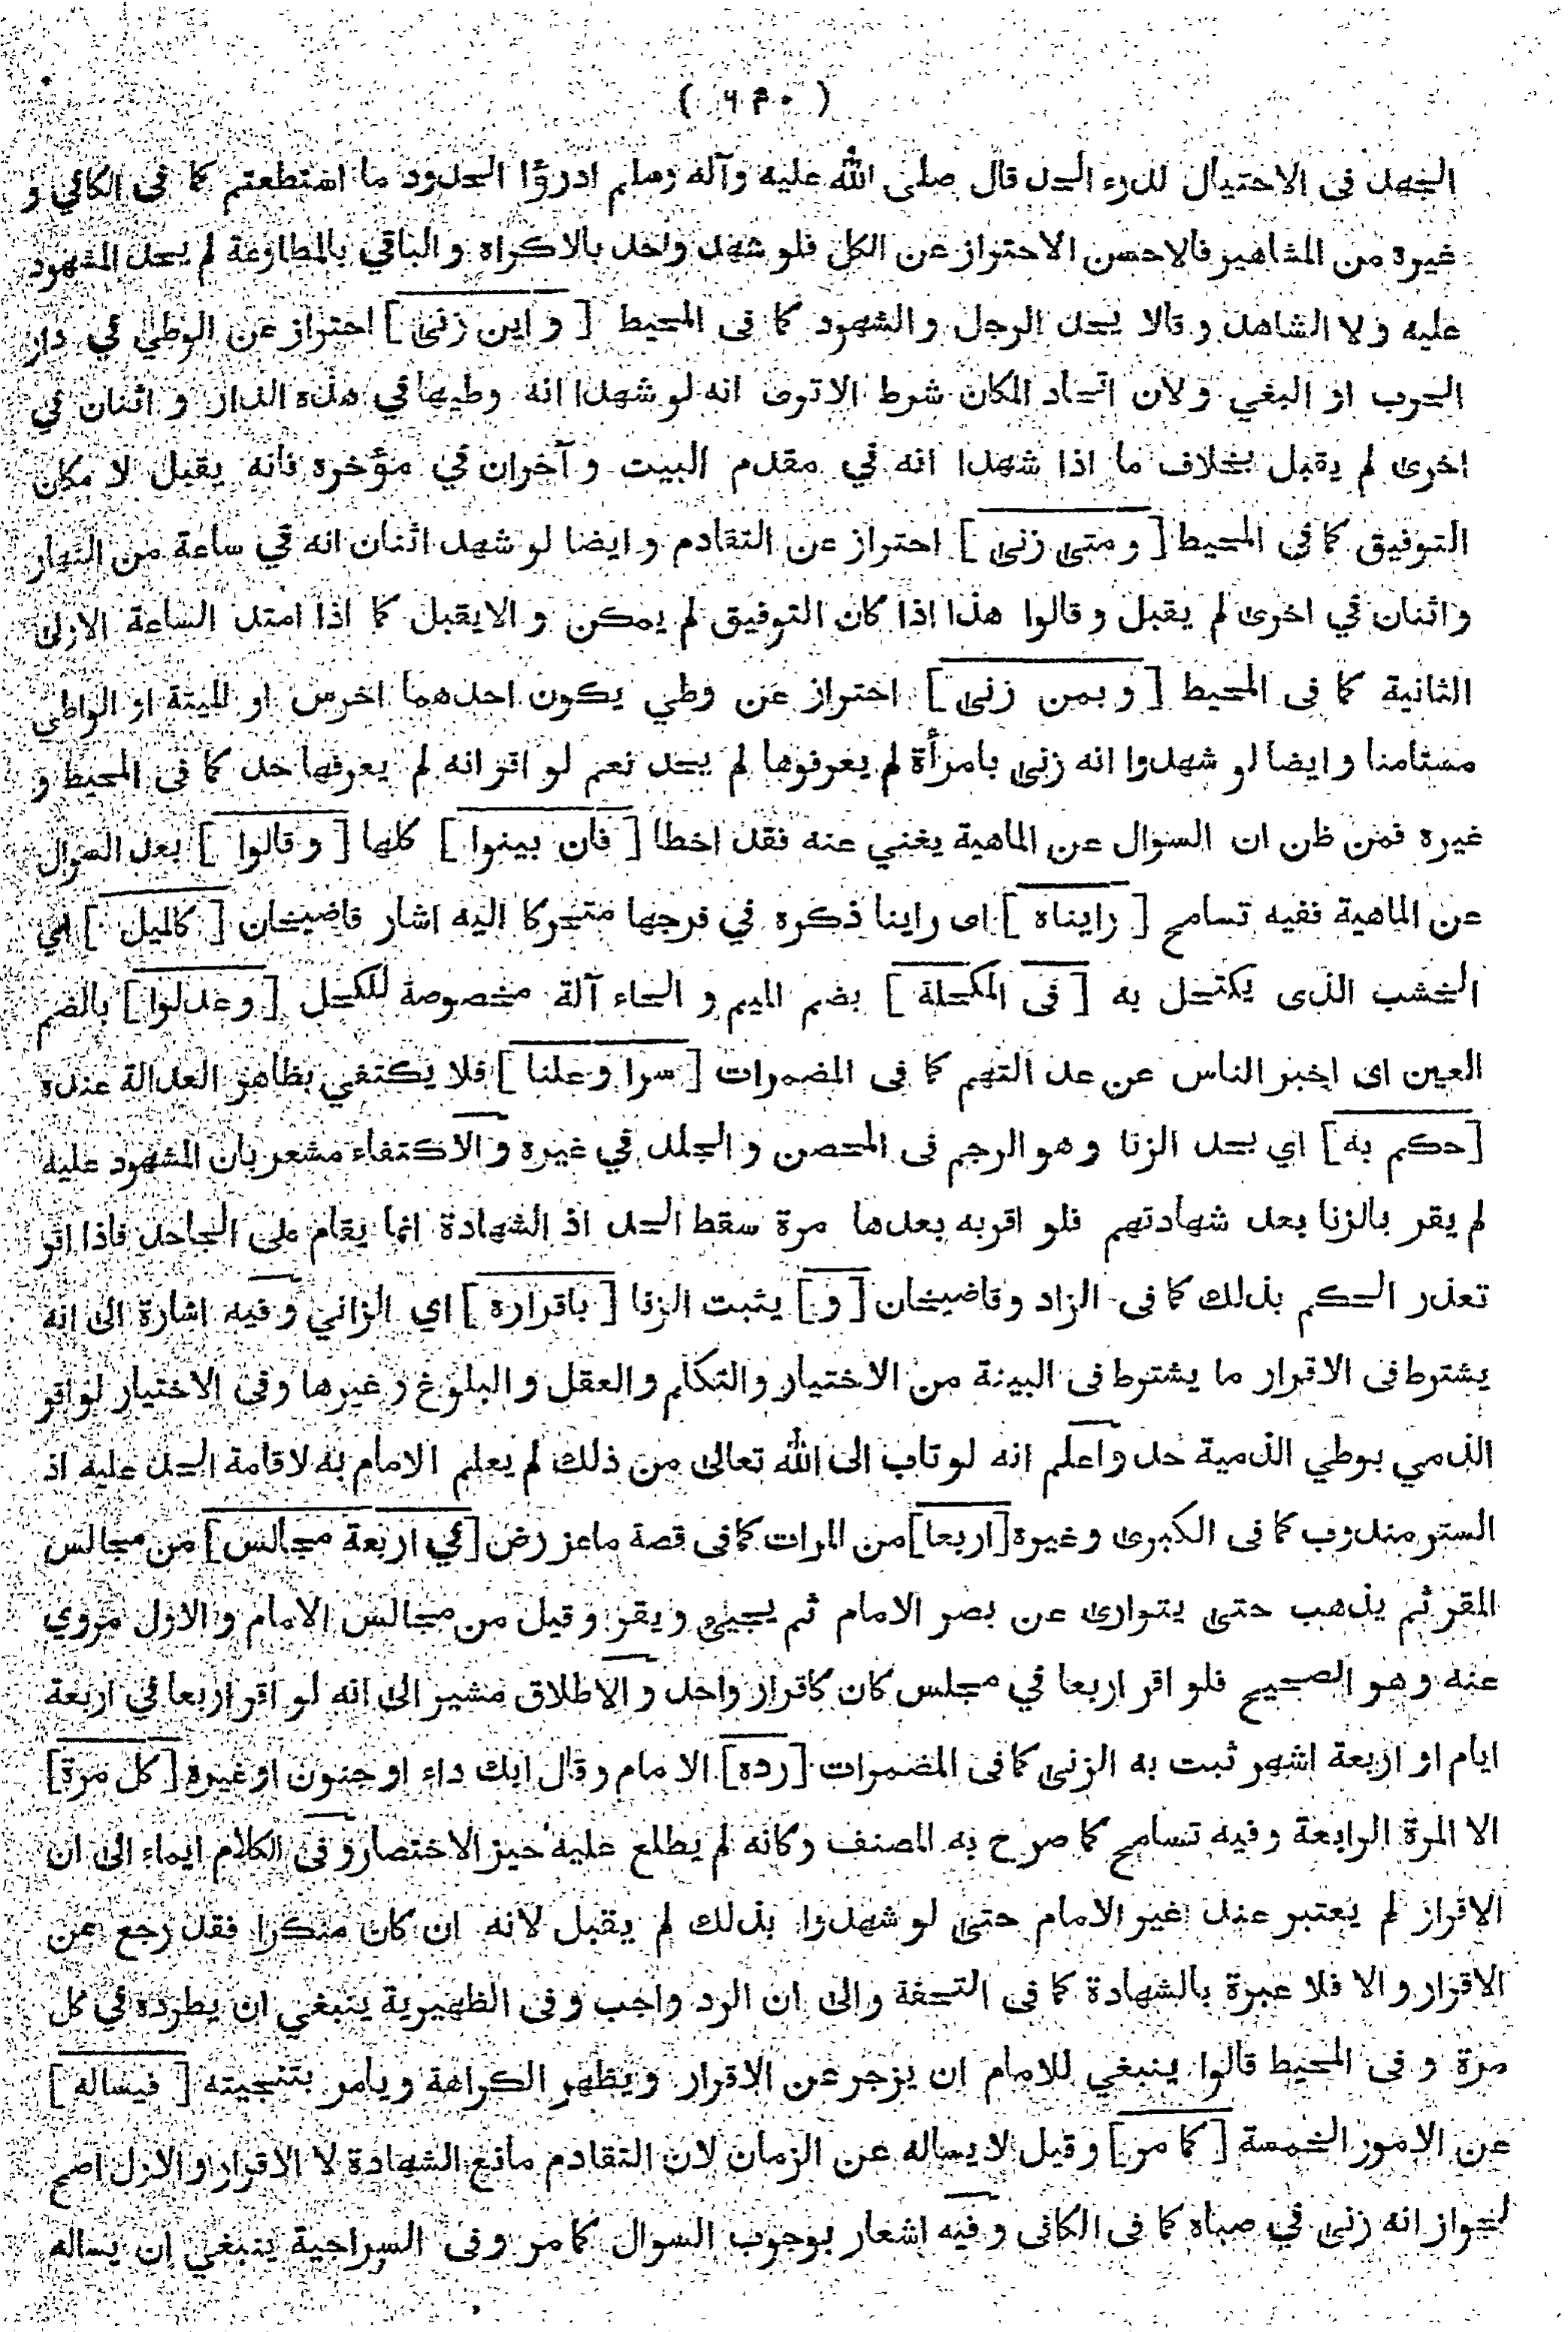 ( ٦٣٠ )
الجهد فى الاحتيال لدرء الحد قال صلى الله عليه وآله وسلم ادرؤا الحدود ما استطعتم كما فى الكافي و
غيره من المشاهير فالاحسن الاحتراز عن الكل فلو شهد واحد بالاكراه و الباقي بالمطاوعة لم يحد المشهود
عليه و لا الشاهد و قالا يحد الرجل و الشهود كما فى المحيط [ و اين زنى ] احتراز عن الوطي في دار
الحرب او البغي و لان اتحاد المكان شرط الاترى انه لو شهدا انه وطيها في هذه الدار و اثنان في
اخرى لم يقبل بخلاف ما اذا شهدا انه في مقدم البيت و آخران في مؤخره فانه يقبل لا مكان
التوفيق كما فى المحيط [ و متى زنى ] احتراز عن التقادم و ايضا لو شهد اثنان انه في ساعة من النهار
و اثنان في اخرى لم يقبل و قالوا هذا اذا كان التوفيق لم يمكن و الايقبل كما اذا امتد الساعة الاولى
الثانية كما فى المحيط [ و بمن زنى ] احتراز عن وطي يكون احدهما اخرس او للميتة او الواطي
مستامنا و ايضا لو شهدوا انه زنى بامرأة لم يعرفوها لم يحد نعم لو اقر انه لم يعرفها حد كما فى المحيط و
غيره فمن ظن ان السوال عن الماهية يغني عنه فقد اخطا [ فان بينوا ] كلها [ و قالوا ] بعد السوال
عن الماهية ففيه تسامح [ رايناه ] اى راينا ذكره في فرجها متحركا اليه اشار قاضيخان [ كالميل ] اي
الخشب الذى يكتحل به [ فى المكحلة ] بضم الميم و الحاء آلة مخصوصة للكحل [ و عدلوا ] بالضم
العين اى اخبر الناس عن عد التهم كما فى المضمرات [ سرا و علنا ] فلا يكتفي بظاهر العدالة عنده
[ حكم به ] اي بحد الزنا و هو الرجم فى المحصن و الجلد في غيره و الاكتفاء مشعر بان المشهود عليه
لم يقر بالزنا بعد شهادتهم فلو اقربه بعدها مرة سقط الحد اذ الشهادة انما يقام على الجاحد فاذا اقر
تعذر الحكم بذلك كما فى الزاد و قاضيخان [ و ] يثبت الزنا [ باقراره ] اي الزاني و فيه اشارة الى انه
يشترط فى الاقرار ما يشترط فى البينة من الاختيار و التكلم و العقل و البلوغ و غيرها و فى الاختيار لو اقر
الذمي بوطي الذمية حد و اعلم انه لو تاب الى الله تعالى من ذلك لم يعلم الامام به لاقامة الحد عليه اذ
الستر مندوب كما فى الكبرى و غيره [ اربعا ] من المرات كما فى قصة ماعز رض [ في اربعة مجالس ] من مجالس
المقر ثم يذهب حتى يتوارى عن بصر الامام ثم يجيئ و يقر و قيل من مجالس الامام و الاول مروي
عنه و هو الصحيح فلو اقر اربعا في مجلس كان كاقرار واحد و الاطلاق مشير الى انه لو اقر اربعا في اربعة
ايام او اربعة اشهر ثبت به الزنى كما فى المضمرات [ رده ] الا مام و قال ابك داء او جنون او غيره [ كل مرة ]
الا المرة الرابعة و فيه تسامح كما صرح به المصنف و كانه لم يطلع عليه حيز الاختصار و فى الكلام ايماء الى ان
الاقرار لم يعتبر عند غير الامام حتى لو شهدوا بذلك لم يقبل لانه ان كان منكرا فقد رجع عن
الاقرار و الا فلا عبرة بالشهادة كما فى التحفة و الى ان الرد واجب و فى الظهيرية ينبغي ان يطرده في كل
مرة و فى المحيط قالوا ينبغي للامام ان يزجر عن الاقرار و يظهر الكراهة و يامر بتنحيته [ فيساله ]
عن الامور الخمسة [ كما مر ] و قيل لا يساله عن الزمان لان التقادم مانع الشهادة لا الاقرار و الاول اصح
لجواز انه زنى في صباه كما فى الكافى و فيه اشعار بوجوب السوال كما مر و فى السراجية ينبغي ان يساله